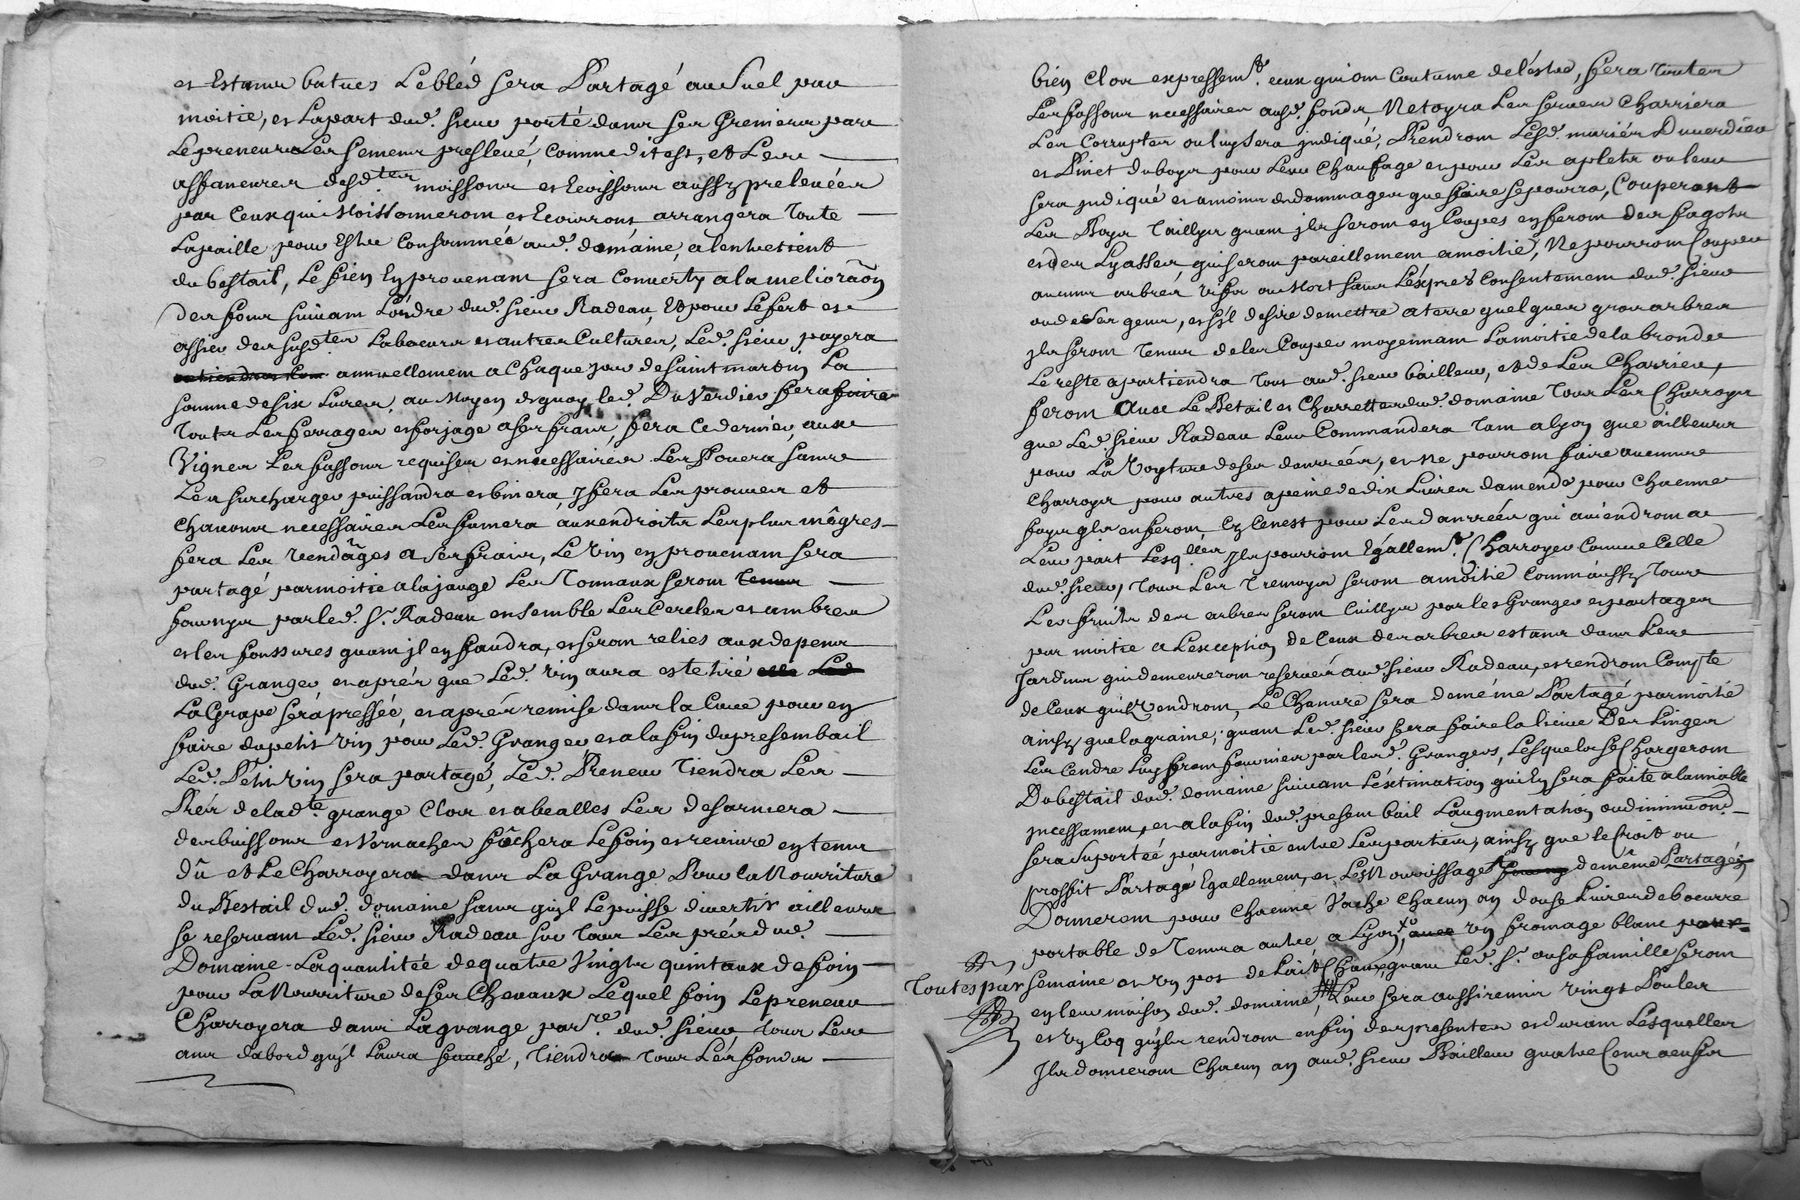 et Estant batues Le bléd sera Partagé au Suel par
moitié, et Lapart dud. sieur porté dans ses Greniers par
Le preneur Les semens preslevé, comme dit est, et Les
affaneures desd.tes moissons et Ecoissons aussy prelevées
par Ceux qui Moissonneront et Ecourrons arrangera toute
Lapaille pour Estre Consommée aud. domaine, a lentretient
du bestail, Le fien En provenant sera Converty ala meliora͠on
Des fons suivant Lordre dud. sieur Radeau, Et pour Le fert et
assier des susd.tes Labeeurs et autres Cultures, Led. sieur payera
annuellement a Chaque jour de saint martin La
somme de six Livres, au Moyen de quoy led. DuVerdier fera faire
toutes Les ferrages et forjage a ses frais, fera ce dernier aux
Vignes Les fassons requises et necessaires Les Pouera sans
Les surcharger puissandra et binera, y fera Les provins et
chavons necessaires Les fumera aux endroits Les plus mêgres
fera Les Vendãges a ses frais, Le Vin en provenant sera
partagé par moitié a la jauge Les Tonnaux seront
fournys par led. Sr. Radeau ensemble Les Cercles et ambres
et les fonssures quant jl en faudra, et seront reliés aux depens
dud. Granger et aprés que Led. Vin aura este tiré
La Grape sera pressée, et aprés remise dans la Cuve pour en
faire du petit vin pour Led. Granger et a la fin du present bail
Led. Petit vin sera partagé, Led. Preneur Tiendra Les
Prés de lad.te grange Clos et abealles Les desarnera
des buissons et Vornaches fâchera Le foin et revivre en temps
dû et Le Charroyera dans La Grange Pour la Nourriture
du Bestail dud. domaine sans quyl Le puisse divertir ailleurs
se reservant Led. sieur Radeau sur tous Les prés dud.
Domaine La quantitée de quatre Vingts quintaux de foin
pour La Nourriture de ses Chevaux Lequel foin Le preneur
Charroyera dans La grange par.re dud. sieur tous Les
ans dabord quyl Laura seauché, Tiendra tous Les fonds
bien Clos expressemt. ceux qui ont Coutume de Léstre, fera toutes
Les fossons necessaires ausd. fonds, Netoyra Les serves Charriera
Les Corruptes ou luy sera jndiqué, Prendront Lesd. mariés Duverdier
et Pinet du boys pour Leur Chauffage et pour Les aplets ou leur
sera jndiqué et amoins de dommages que faire se pourra, Couperont
Les Boys Taillys quant jls seront en Coupes en feront des fagots
et des Lyasses qui seront pareillement a moitié, Ne pourront Couper
aucuns arbres Vifs ou Mort sans Léxprès Consentement dud. sieur
ou de ses gens, et syl desire de mettre a terre quelques gros arbres
jls seront tenus de les Couper moyennant La moitié de la brondee
Le reste apartiendra tous aud. sieur bailleur, et de Les Charrier,
feront Avec Le Betail et Charrettes dud. domaine tous Les Charroys
que Led. sieur Radeau Leur Commandera Tant a lyon que ailleurs
pour La Voyture de ses danrées, et Ne pourront faire aucuns
Charroys pour autres a peine de dix Livres damende pour Chacune
foys qls en feront sy Ce nest pour Les danrrées qui aviendront a
Leur part Lesq.lles jls pourront Egallemt. Charroyer Comme Celle
dud. sieur, tous Les Tremoys seront a moitié Comm'aussy tous
Les fruits des arbres seront Cuillys par les Granger et partager
par moitié a Lexception de Ceux des arbres estans dans Les
Jardins qui demeureront reservés aud. sieur Radeau, et rendront Compte
de Ceux quils Vendront, Le Chanvre sera de méme Partagé par moitié
ainsy que la graine, quant Led. sieur fera faire la lisive Des Linges
Les Cendre Luy seront fournies par led. Grangers, Lesquels se Chargeront
Du bestail dud. domaine suivant Léstimation qui En sera faite a lamiable
jncessament, et a la fin dud. present bail Laugmentation ou diminuon.
sera suportée par moitié entre Les parties, ainsy que le Croit ou
proffit Partagé Egallement, et Les Nourrissages de même Partagés
Donneront pour Chacune Vache Chacun an douse Livres de beurre
portable de Temps autre a Lyon, un fromage blanc
Toutes par semaine et un pot de Lait Chaud, quant Led. Sr. ou sa famille seront
en leur maison dud. domaine, Leur sera aussi remis vingt Poules
et un Coq quyls rendront en fin des presentes et durant Lesquelles
Jls donneront Chacun an aud. sieur Bailleur quatre Cens oeufs